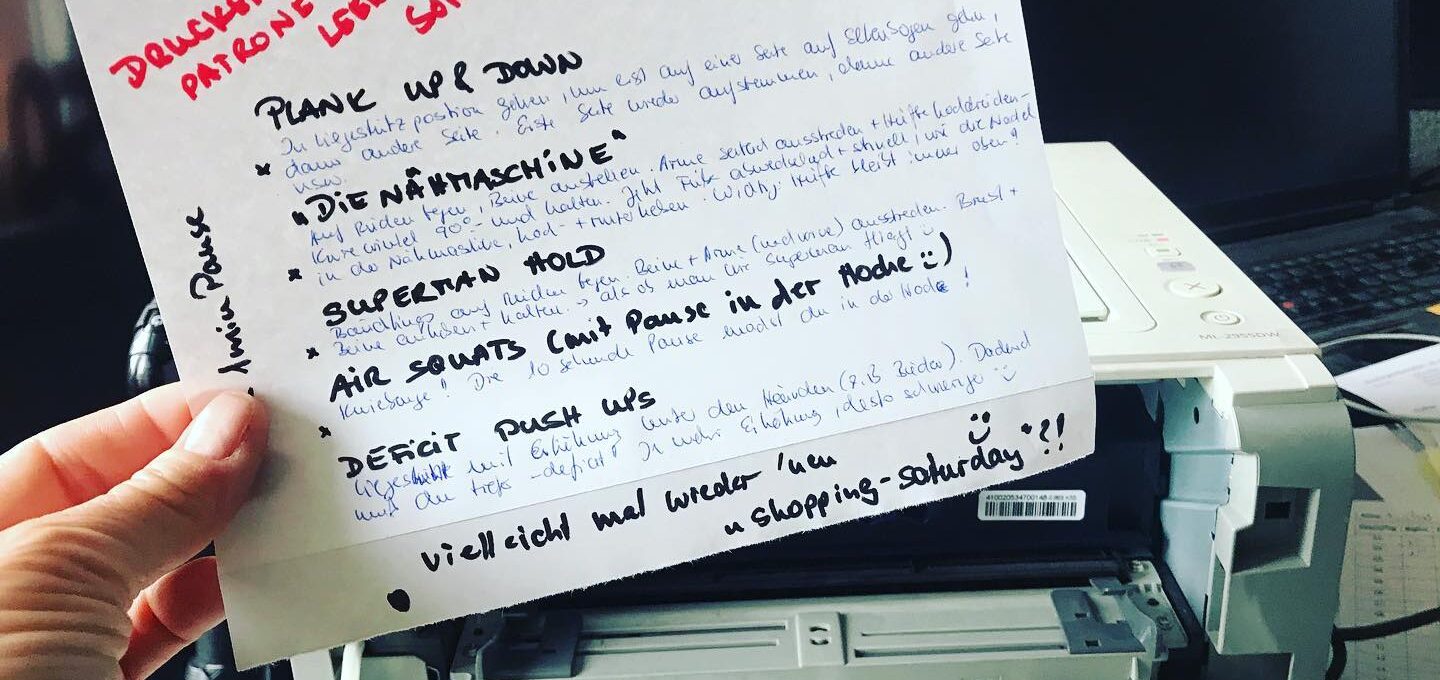 DRUCKER
PATRONE
LEER
PLANK UP & DOWN
In Liegestütz position gehen, um erst auf einer Seite auf Ellenbogen gehen,
dann andere Seite. Erste Seite wieder aufstemmen, dann andere Seite
usw.
* "DIE NÄHMASCHINE"
Auf Rücken legen, Beine anstellen. Arme seitlich ausstrecken + Hüfte hochdrücken -
Knie winkel 90° - und halten. Jetzt Füße abwechselnd + schnell, wie die Nadel
in der Nähmaschine, hoch- + runter heben. Wichtig: Hüfte bleibt immer oben!
* SUPERMAN HOLD
Bäuchlings auf Rücken legen. Beine + Arme (nach vorne) ausstrecken. Brust +
Beine anheben + halten. → als ob man wie Superman fliegt
* AIR SQUATS (mit Pause in der Hocke :))
Kniebeuge! Die 10 sekunde Pause machst du in der Hocke!
* DEFICIT PUSH UPS
Liegestütz mit Erhöhung unter den Händen (z.B. Bücher). Dadurch
"deficit" Je mehr Erhöhung, desto schwieriger
1 min Pause
vielleicht mal wieder 'nen
"shopping-saturday"?!
410020534700148
ML-2955DW